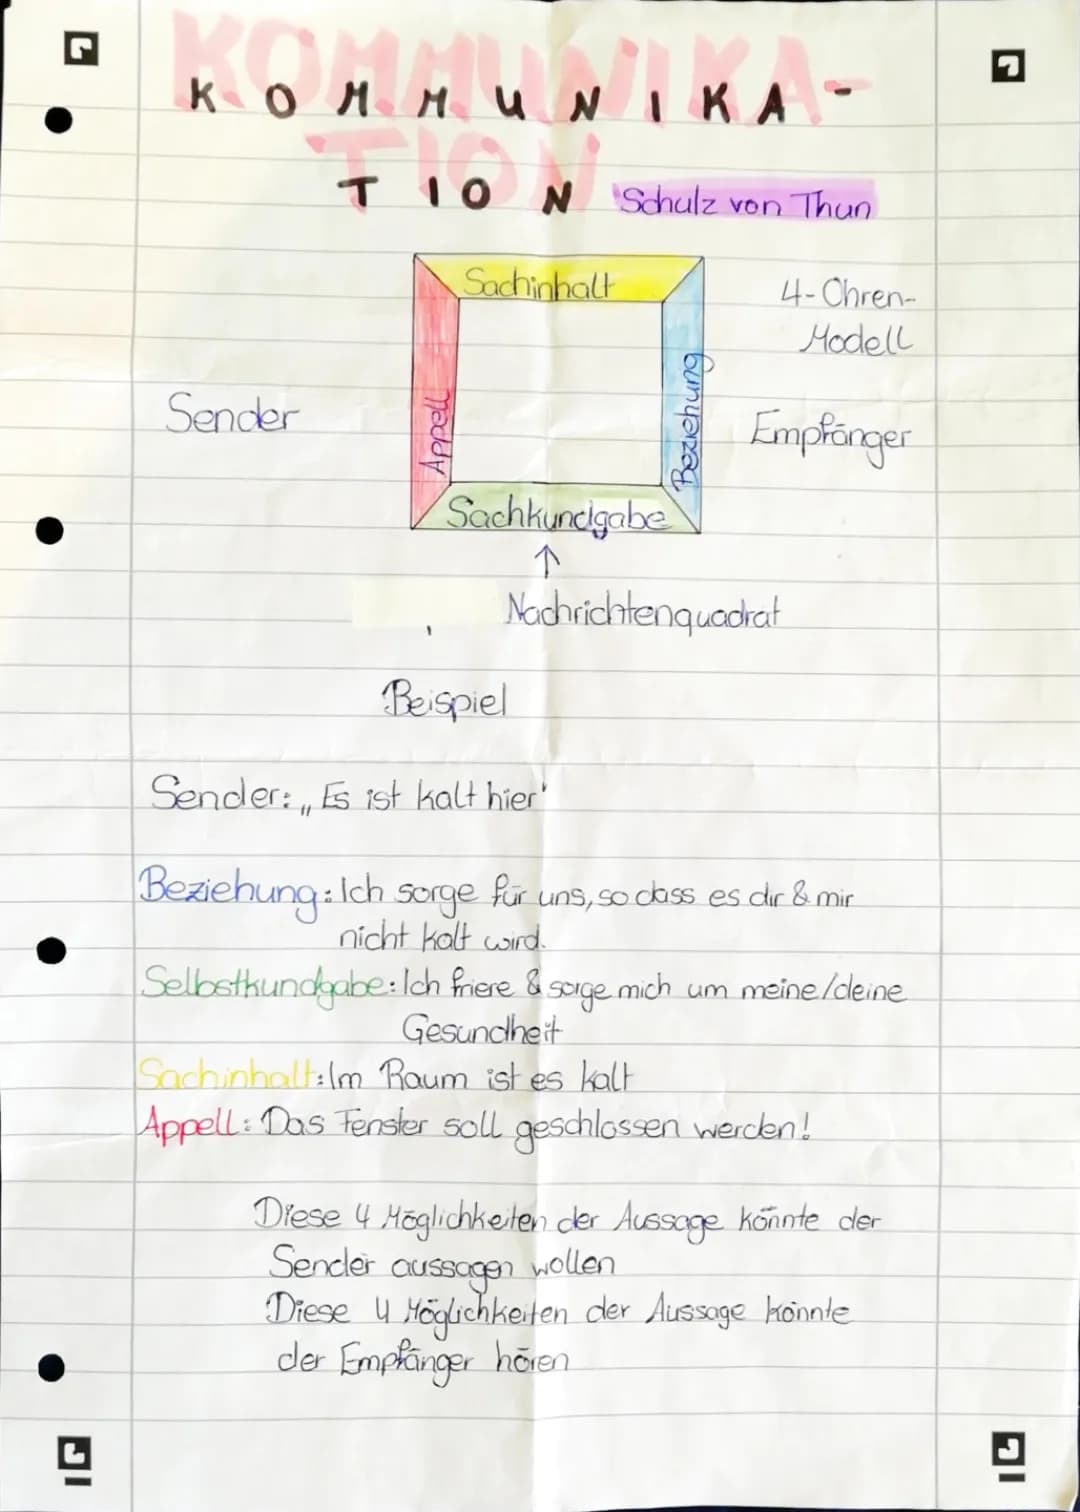 KOMMUNIKA-
TION
KOMMUNIKA-
TION
Schulz von Thun
Sachinhalt
4-Ohren-
Modell
Sender
Appell
Beziehung
Empfänger
Sachkundgabe
↑
Nachrichtenquadrat
Beispiel
Sender: „Es ist kalt hier'
Beziehung: Ich sorge für uns, so dass es dir & mir
nicht kalt wird.
Selbstkundgabe: Ich friere & sorge mich um meine/deine
Gesundheit
Sachinhalt: Im Raum ist es kalt
Appell: Das Fenster soll geschlossen werden!
Diese 4 Möglichkeiten der Aussage könnte der
Sender aussagen wollen
Diese 4 Möglichkeiten der Aussage könnte
der Empfänger hören